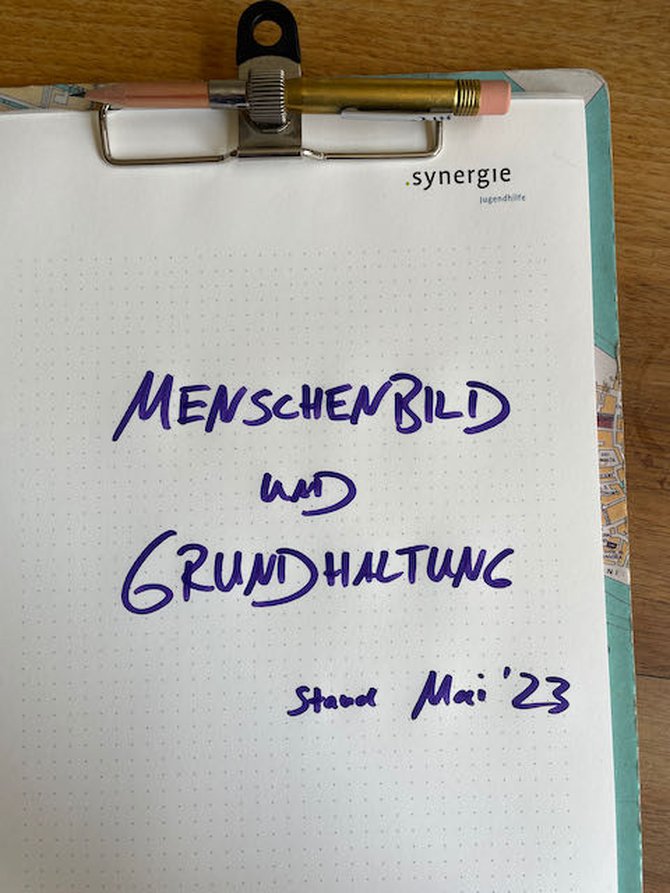 .synergie
jugendhilfe
MENSCHENBILD
UND
GRUNDHALTUNG
Stand Mai '23